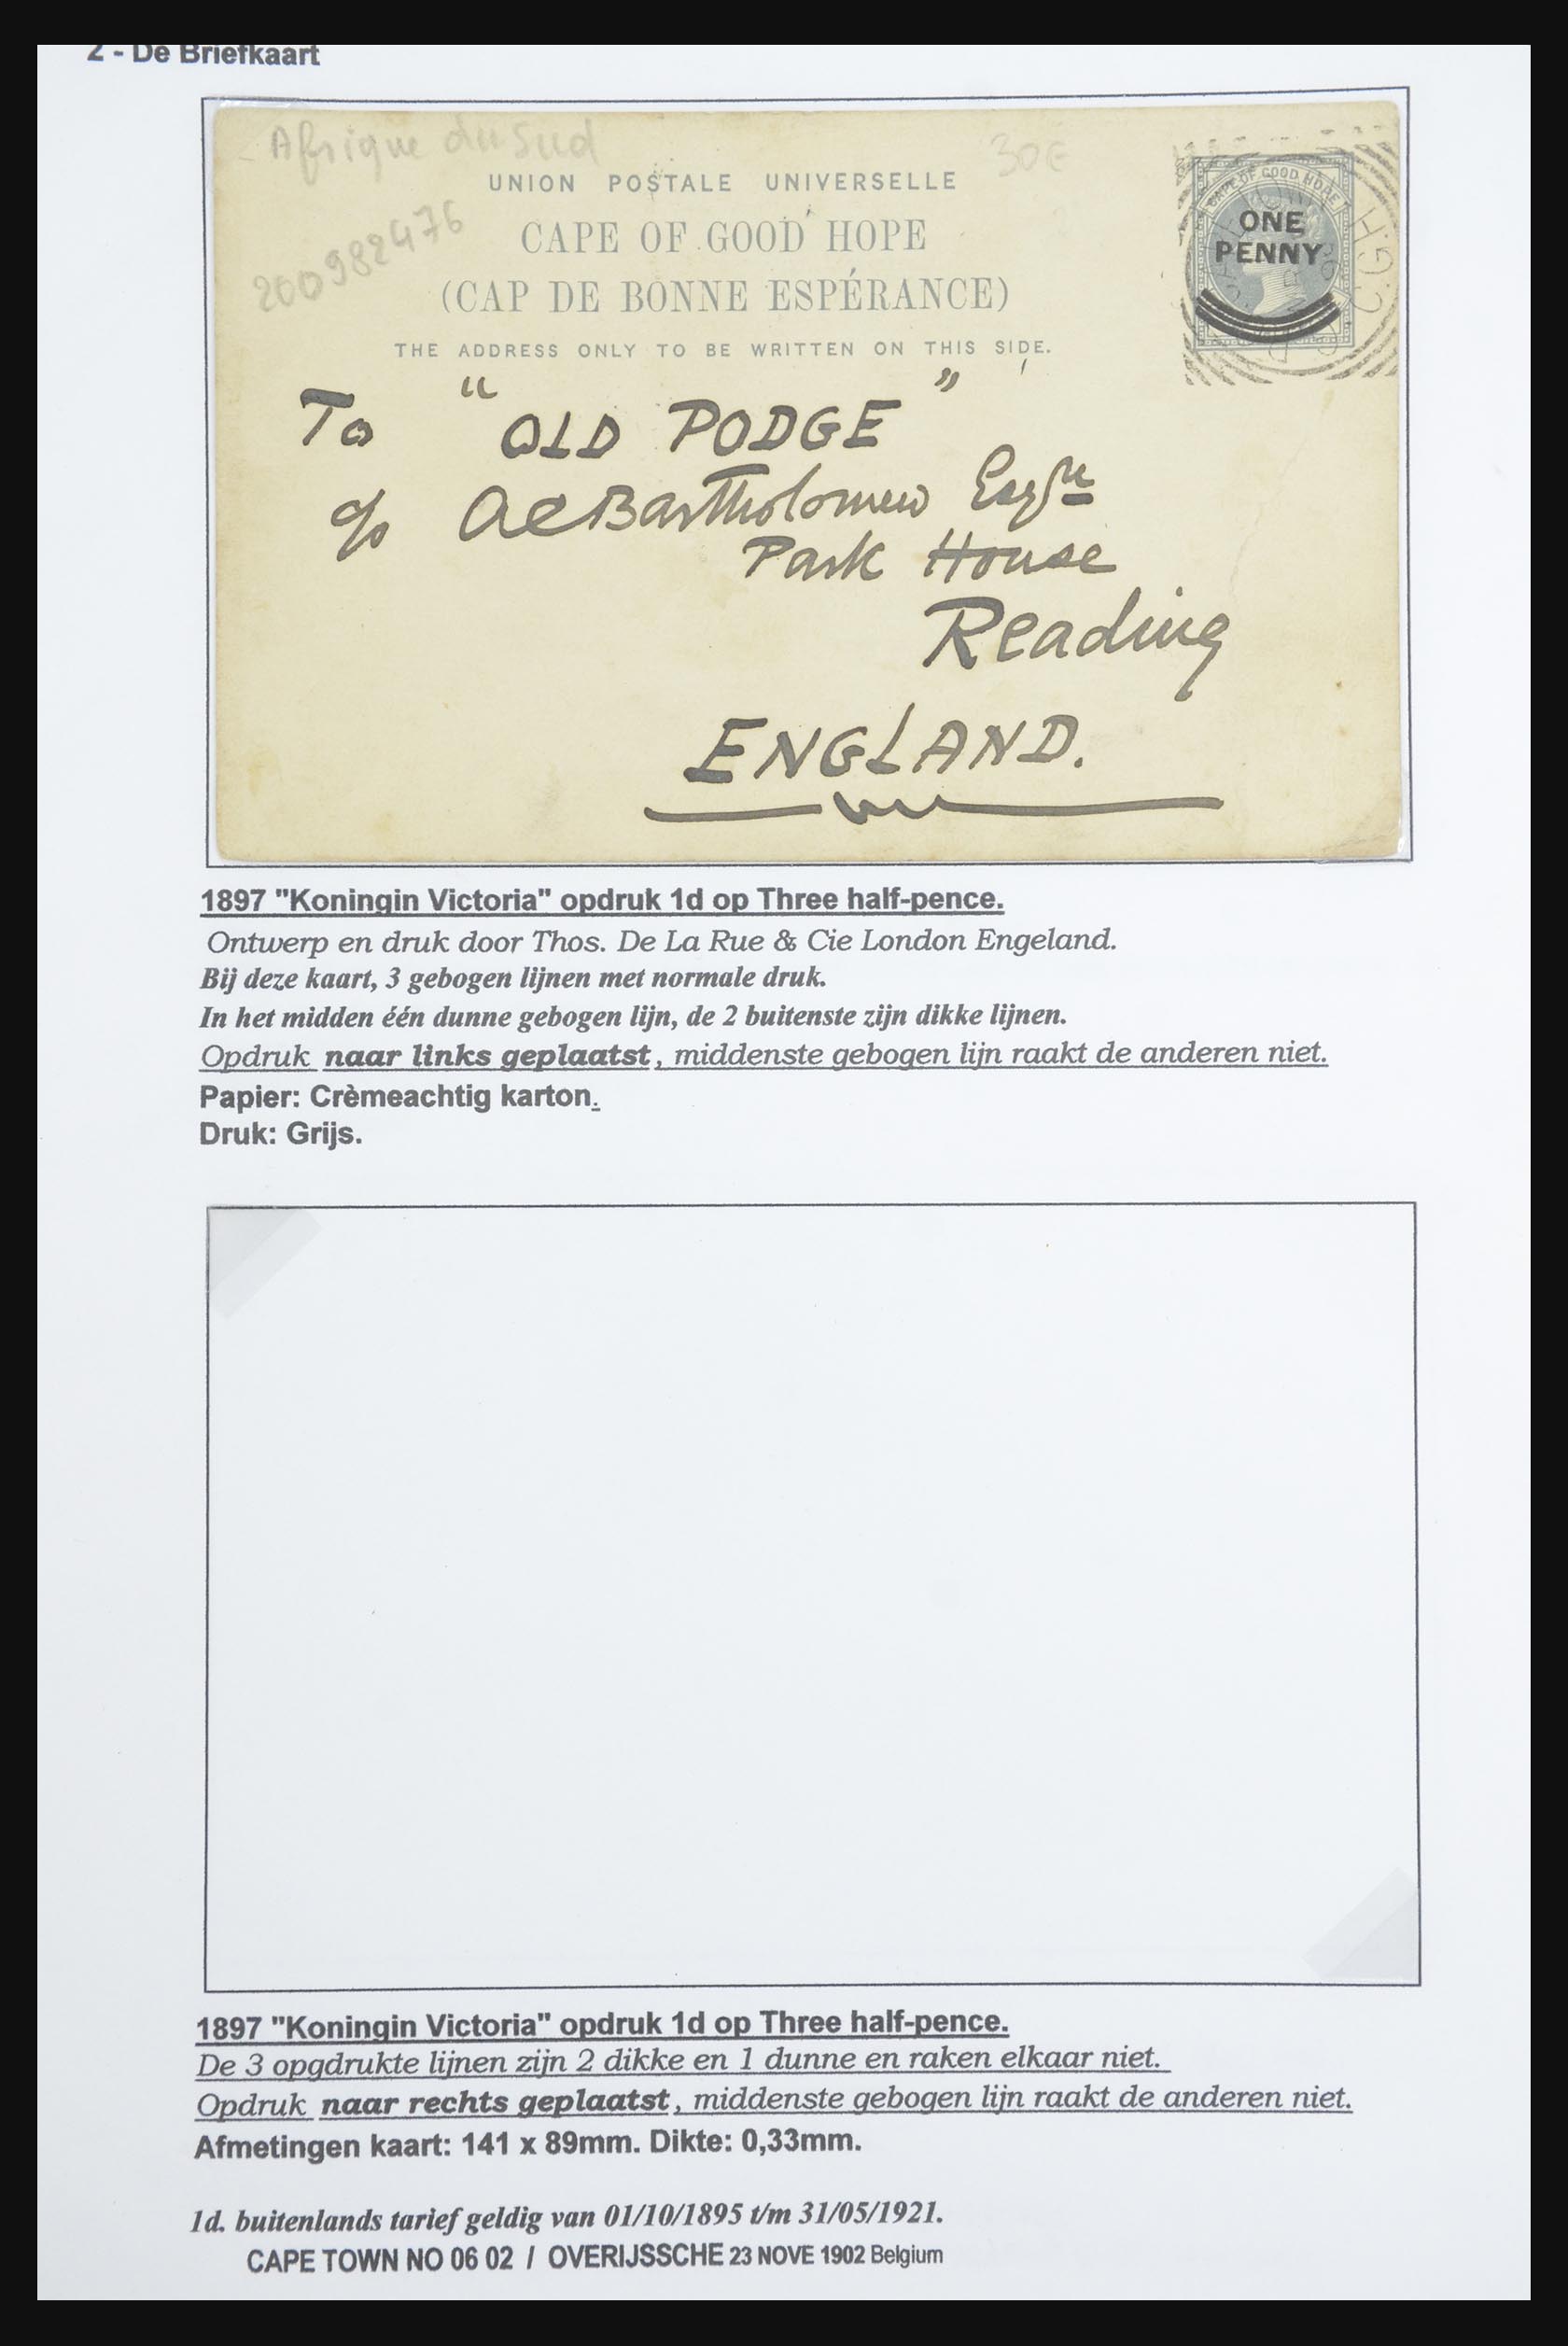 2 - De Briefkaart
Afrique du Sud
30€
UNION POSTALE UNIVERSELLE
200982476
CAPE OF GOOD HOPE
(CAP DE BONNE ESPÉRANCE)
THE ADDRESS ONLY TO BE WRITTEN ON THIS SIDE.
CAPE OF GOOD HOPE
ONE
PENNY
C.G.H
To "OLD PODGE"
c/o A E Bartholomew Esqre
Park House
Reading
ENGLAND.
1897 "Koningin Victoria" opdruk 1d op Three half-pence.
Ontwerp en druk door Thos. De La Rue & Cie London Engeland.
Bij deze kaart, 3 gebogen lijnen met normale druk.
In het midden één dunne gebogen lijn, de 2 buitenste zijn dikke lijnen.
Opdruk naar links geplaatst, middenste gebogen lijn raakt de anderen niet.
Papier: Crèmeachtig karton.
Druk: Grijs.
1897 "Koningin Victoria" opdruk 1d op Three half-pence.
De 3 opgdrukte lijnen zijn 2 dikke en 1 dunne en raken elkaar niet.
Opdruk naar rechts geplaatst, middenste gebogen lijn raakt de anderen niet.
Afmetingen kaart: 141 x 89mm. Dikte: 0,33mm.
1d. buitenlands tarief geldig van 01/10/1895 t/m 31/05/1921.
CAPE TOWN NO 06 02 / OVERIJSSCHE 23 NOVE 1902 Belgium